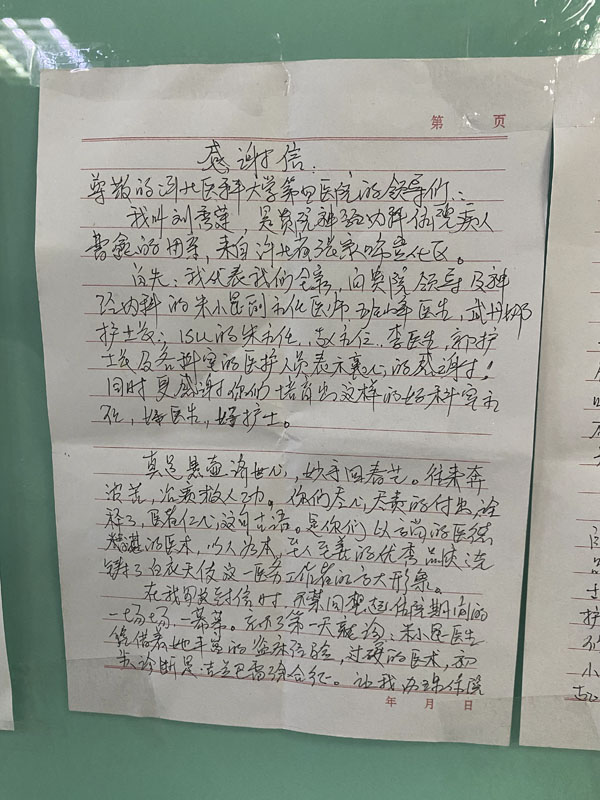 第 页
感谢信:
尊敬的河北医科大学第四医院的领导们:
我叫刘秀莲,是贵院神经内科住院病人
曹毅的田家,来自河北省张家口宣化区。
首先:我代表我们全家,向贵院领导及神
经内科的朱小昆副主任医师,班峰医生,武丹娜
护士长;ISU的朱主任,赵主任,李医生,郭护
士长及各科室的医护人员表示衷心的感谢!
同时更感谢你们培育出这样的好科室主
任,好医生,好护士。
真是悬壶济世心,妙手回春艺。往来奔
波苦,治病救人功。你们尽心尽责的付出,诠
释了,医者仁心这句古语。是你们以高尚的医德
精湛的医术,以人为本,至人至善的优秀品质浇
铸了白衣天使这一医务工作者的高大形象。
在我写这封信时,不禁回想起住院期间的
一场场,一幕幕。 第一天就诊,朱小昆医生
凭借着她丰富的临床经验,过硬的医术,初
步诊断是:吉兰巴雷综合征。让我办理住院
年 月 日